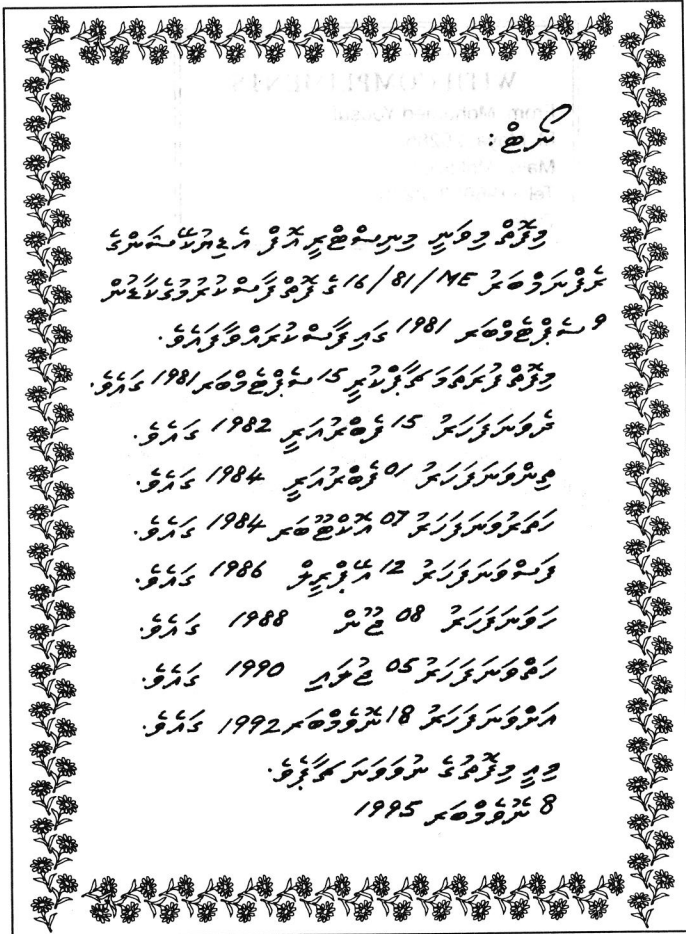 ނޯޓް:
މިފޮތް މިވަނީ މިނިސްޓްރީ އޮފް އެޑިޔުކޭޝަންގެ
ރެފްނަމްބަރު 16/81/ME ގެ ފޮތްފާސްކުރުމުގެކާޑުން
9 ސެޕްޓެމްބަރ 1981 ގައިފާސްކުރައްވާފައެވެ.
މިފޮތްފުރަތަމަ ޗާޕްކުރީ 15 ސެޕްޓެމްބަރ 1981 ގައެވެ.
ދެވަނަފަހަރު 15 ފެބްރުއަރީ 1982 ގައެވެ.
ތިންވަނަފަހަރު 01 ފެބްރުއަރީ 1984 ގައެވެ.
ހަތަރުވަނަފަހަރު 07 އޮކްޓޫބަރ 1984 ގައެވެ.
ފަސްވަނަފަހަރު 12 އޭޕްރިލް 1986 ގައެވެ.
ހަވަނަފަހަރު 08 ޖޫން 1988 ގައެވެ.
ހަތްވަނަފަހަރު 05 ޖުލައި 1990 ގައެވެ.
އަށްވަނަފަހަރު 18 ނޮވެމްބަރ 1992 ގައެވެ.
މިއީ މިފޮތުގެ ނުވަވަނަ ޗާޕެވެ.
8 ނޮވެމްބަރ 1995